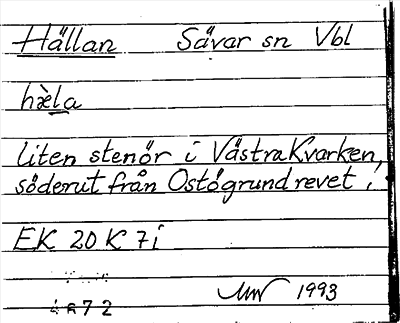 Hällan Sävar sn Vbl
hὲla
liten stenör i Västra Kvarken,
söderut från Ostögrundrevet!
EK 20 K 7i
1993
4872